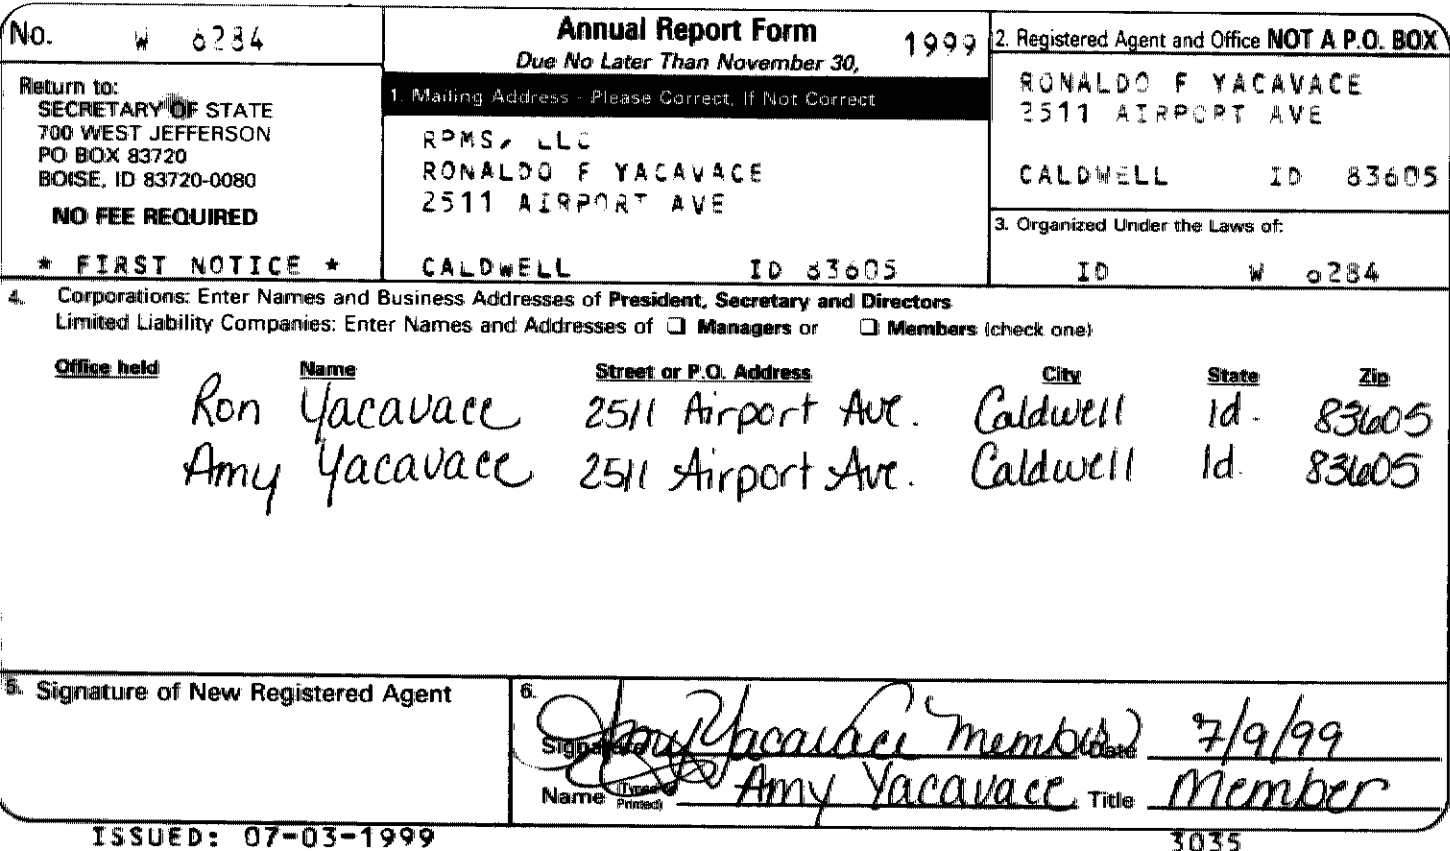 No. W 6284
Return to:
SECRETARY OF STATE
700 WEST JEFFERSON
PO BOX 83720
BOISE, ID 83720-0080
NO FEE REQUIRED
* FIRST NOTICE *
Annual Report Form 1999
Due No Later Than November 30,
1. Mailing Address - Please Correct, If Not Correct
RPMS, LLC
RONALDO F YACAVACE
2511 AIRPORT AVE
CALDWELL ID 83605
2. Registered Agent and Office NOT A P.O. BOX
RONALDO F YACAVACE
2511 AIRPORT AVE
CALDWELL ID 83605
3. Organized Under the Laws of:
ID W 6284
4. Corporations: Enter Names and Business Addresses of President, Secretary and Directors
Limited Liability Companies: Enter Names and Addresses of ☐ Managers or ☐ Members (check one)
Office held Name Street or P.O. Address City State Zip
Ron Yacavace 2511 Airport Ave. Caldwell Id. 83605
Amy Yacavace 2511 Airport Ave. Caldwell Id. 83605
5. Signature of New Registered Agent
6.
Signature Amy Yacavace member Date 7/9/99
Name (Typed or Printed) Amy Yacavace Title Member
ISSUED: 07-03-1999
3035